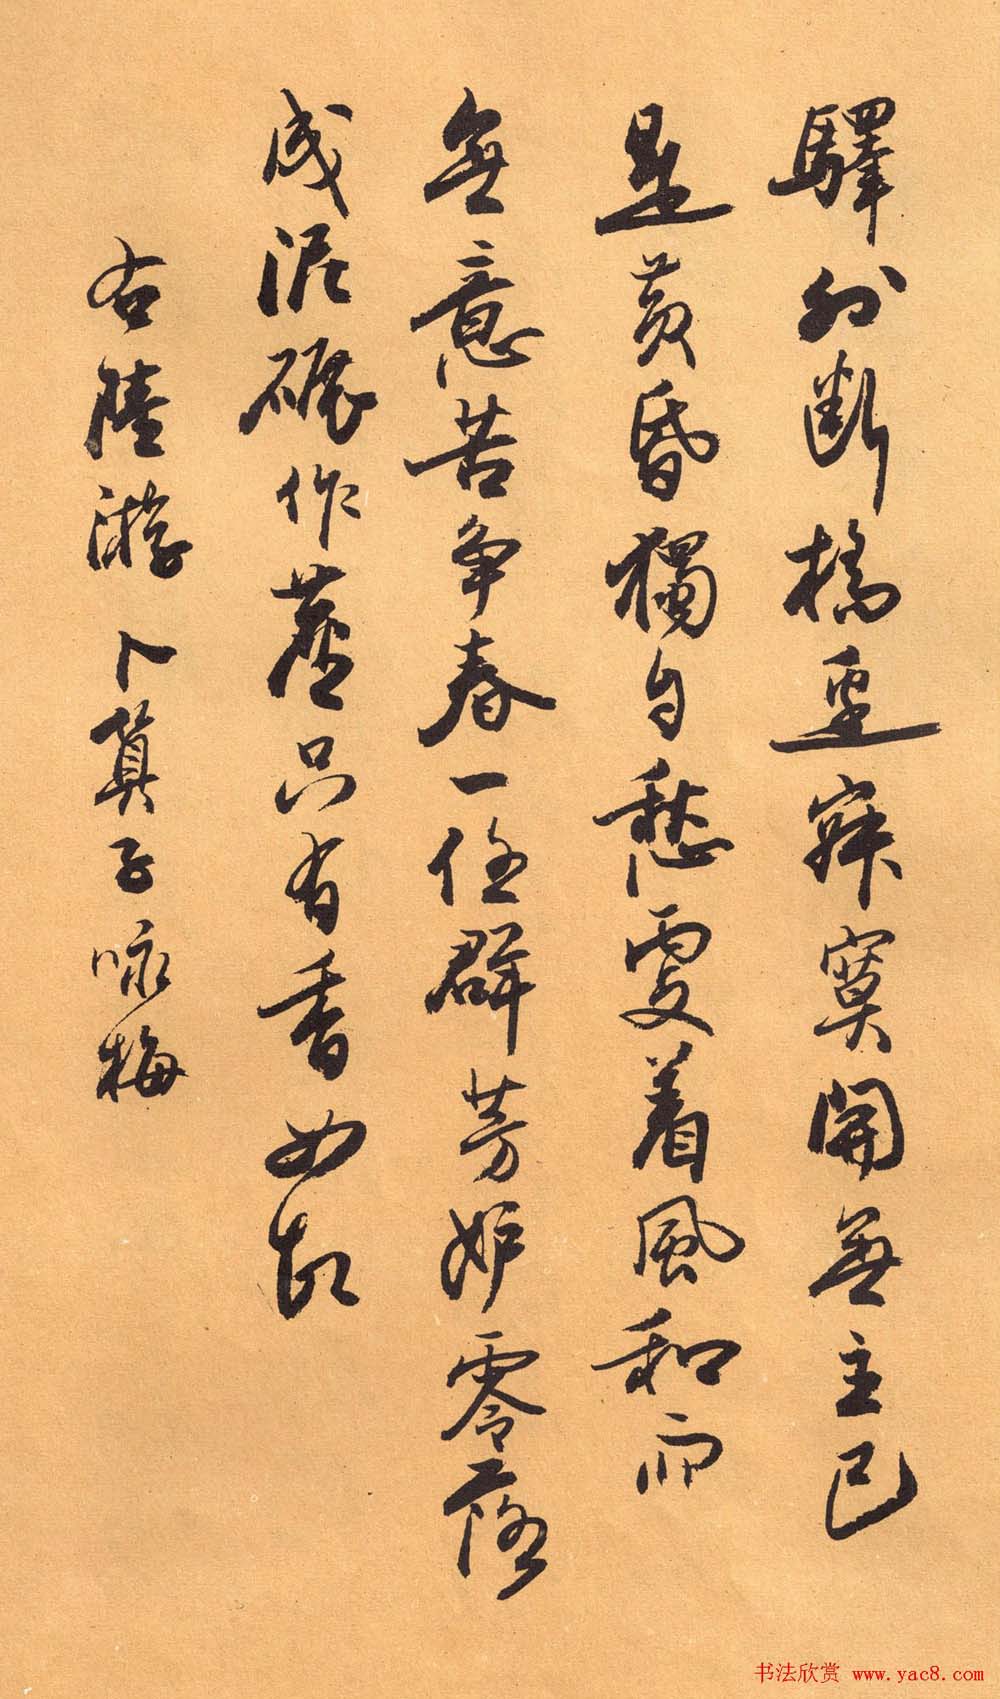 驛外斷橋邊寂寞開無主已
是黃昏獨自愁更着風和雨
無意苦争春一任群芳妒零落
成泥碾作塵只有香如故
右陸游卜算子咏梅
书法欣赏 www.yac8.com